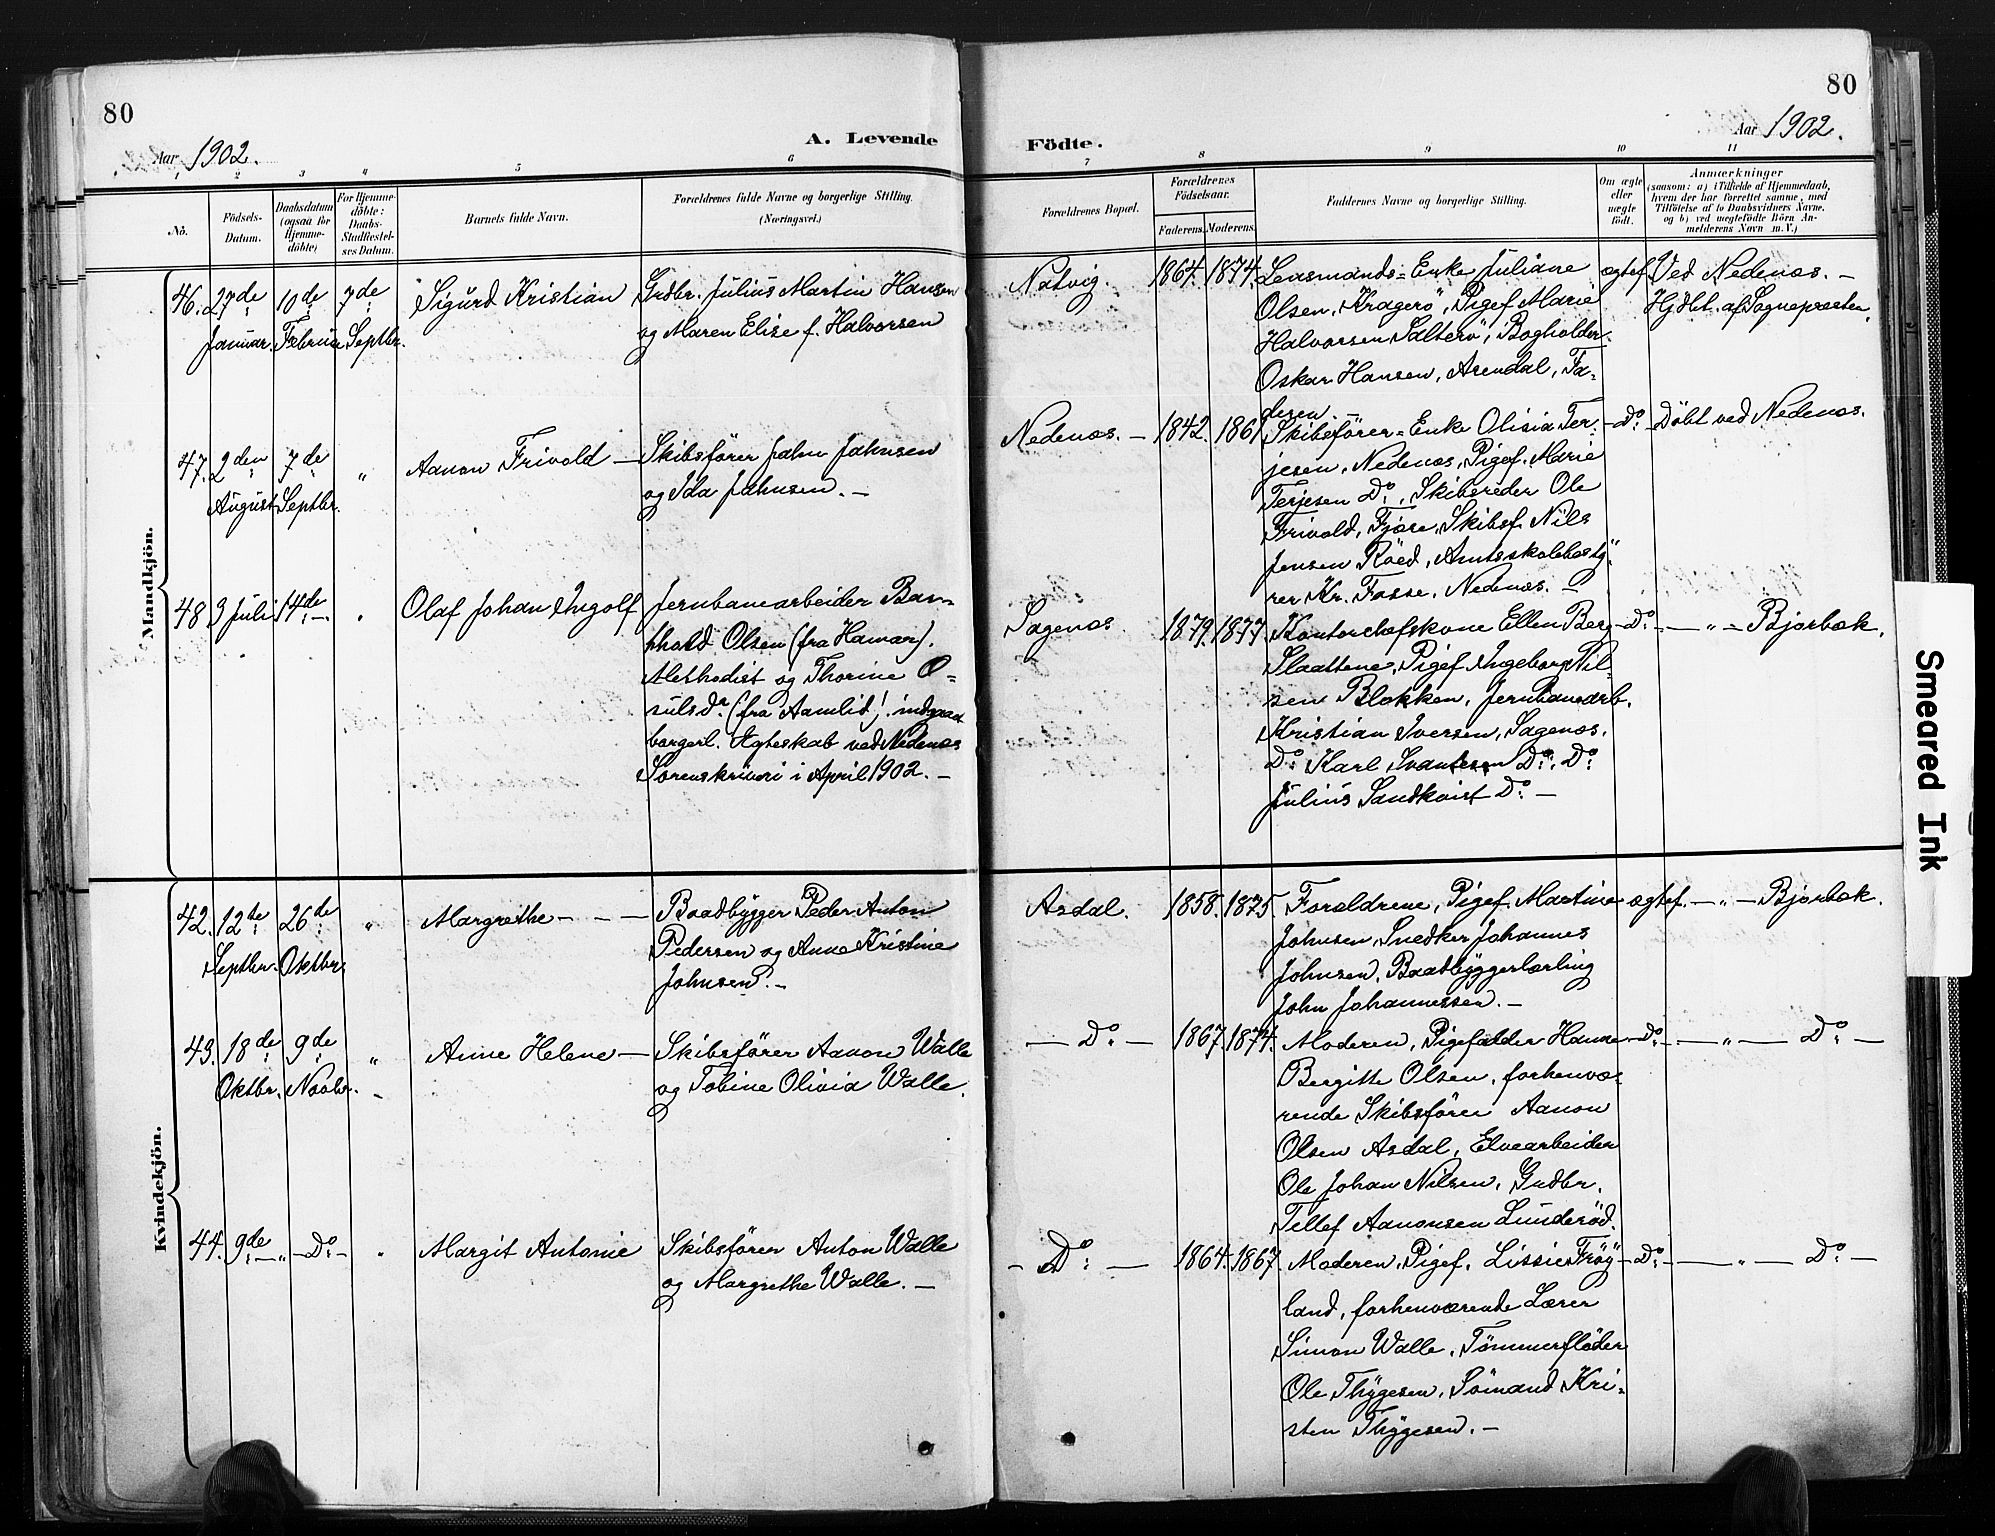 80
80
Aar 1902.
A. Levende
Födte.
Aar 1902.
1 2 3 4 5 6 7 8 9 10 11
No.
Födsels-
Datum.
Daabsdatum
(ogsaa for
Hjemme-
döbte)
For Hjemme-
döbte:
Daabs-
Stadfæstel-
ses Datum.
Barnets fulde Navn.
Forældrenes fulde Navne og borgerlige Stilling
(Næringsvei.)
Forældrenes Bopæl.
Forældrenes
Födselsaar.
Faderens. Moderens.
Faddernes Navne og borgerlige Stilling.
Om ægte
eller
uægte
født.
Anmærkninger
(saasom: a) i Tilfælde af Hjemmedaab,
hvem der har forrettet samme, med
Tilföielse af to Daabsvidners Navne.
og b) ved uægtefödte Börn An-
melderens Navn m. V.)
Mandkjön.
46. 27de Januar. 10de Februar 7de Septbr.
Sigurd Kristian
Grdbr. Julius Martin Hansen
og Maren Elise f. Halvorsen
Natvig. 1864. 1874.
Lensmands-Enke Juliane
Olsen, Kragerö, Pigef. Marie
Halvorsen Salterö, Bogholder
Oskar Hansen, Arendal, Fa-
deren
ægtef.
Ved Nedenæs. —
Hjdbt. af Sognepresten.
47. 2den August 7de Septbr. "
Aanon Frivold —
Skibsfører John Johnsen
og Ida Johnsen. —
Nedenæs. — 1842. 1861
Skibsfører-Enke Olisia Ter-
jesen, Nedenæs, Pigef. Marie
Terjesen Do., Skibsreder Ole
Frivold, Fjære, Skibsf. Nils
Jensen Röed, Amtsskolebesty-
rer Kr. Fasse, Nedenæs. —
— Do:
Döbt ved Nedenæs.
48 3 Juli 14de — "
Olaf Johan Ingolf
Jernbanearbeider
Olsen (fra Hamar),
Methodist og Thorine O-
sulsdr. (fra Aamlid)
borgerl. Ægteskab ved Nedenæs
Sorenskriveri i April 1902. —
Sagenæs 1879. 1877.
Kontorchefskone Ellen Berg
Slaattene, Pigef. Ingeborg Nil-
sen Blokken, Jernbanearb.
Kristian Iversen, Sagenæs,
Do: Karl Do:, Do:
Julius Sandkvist Do: —
— Do: — " — Bjorbæk.
Kvindekjön.
42. 12te Septbr. 26de Oktbr. "
Margrethe — — —
Baadbygger Peder Anton
Pedersen og Anne Kristine
Johnsen. —
Asdal. 1858. 1875
Forældrene, Pigef. Martine
Johnsen, Snedker Johannes
Johnsen, Baadbyggerlærling
John Johannessen. —
ægtef. — " — Bjorbæk.
43. 18de Oktbr. 9de Novbr. " -
Anne Helene —
Skibsfører Aanon Walle
og Tobine Olivia Walle.
— Do: — 1867. 1874.
Moderen, Pigefadder Hanne
Bergitte Olsen, forhenvæ-
rende Skibsfører Aanon
Olsen Asdal, Elvearbeider
Ole Johan Nilsen, Grdbr.
Tellef Aanonsen Lunderöd.
— Do: — " — Do: —
44. 9de — " — Do: — "
Margit Antonie
Skibsfører Anton Walle
og Margrethe Walle. —
— Do: — 1864. 1867.
Moderen, Pigef. Lissie Fröy-
land, forhenværende Lærer
Simon Walle, Tømmerfløder
Ole Thygesen, Sømand Kri-
sten Thygesen. —
— Do: — " — Do: —
Smeared Ink